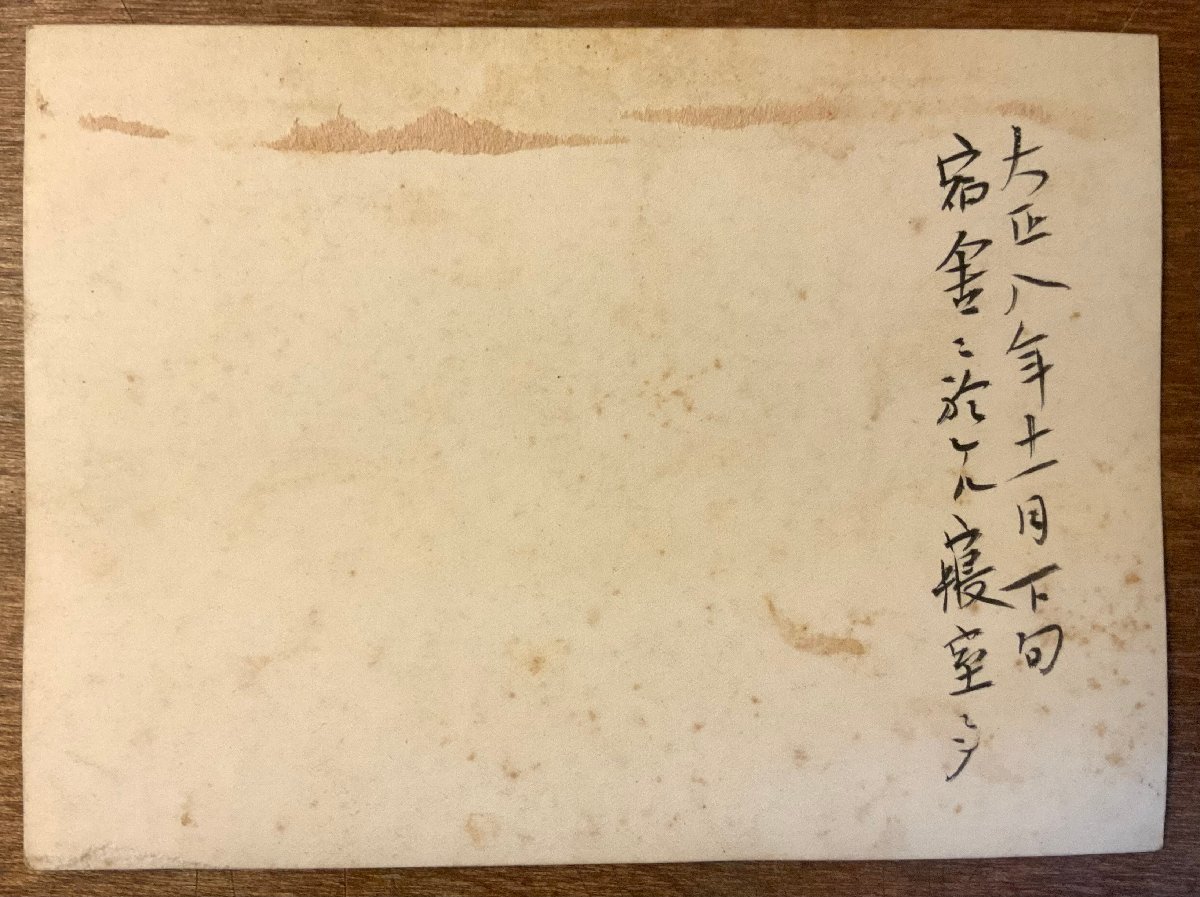 大正八年十一月下旬
宿舍ニ於ケル寝室ニテ